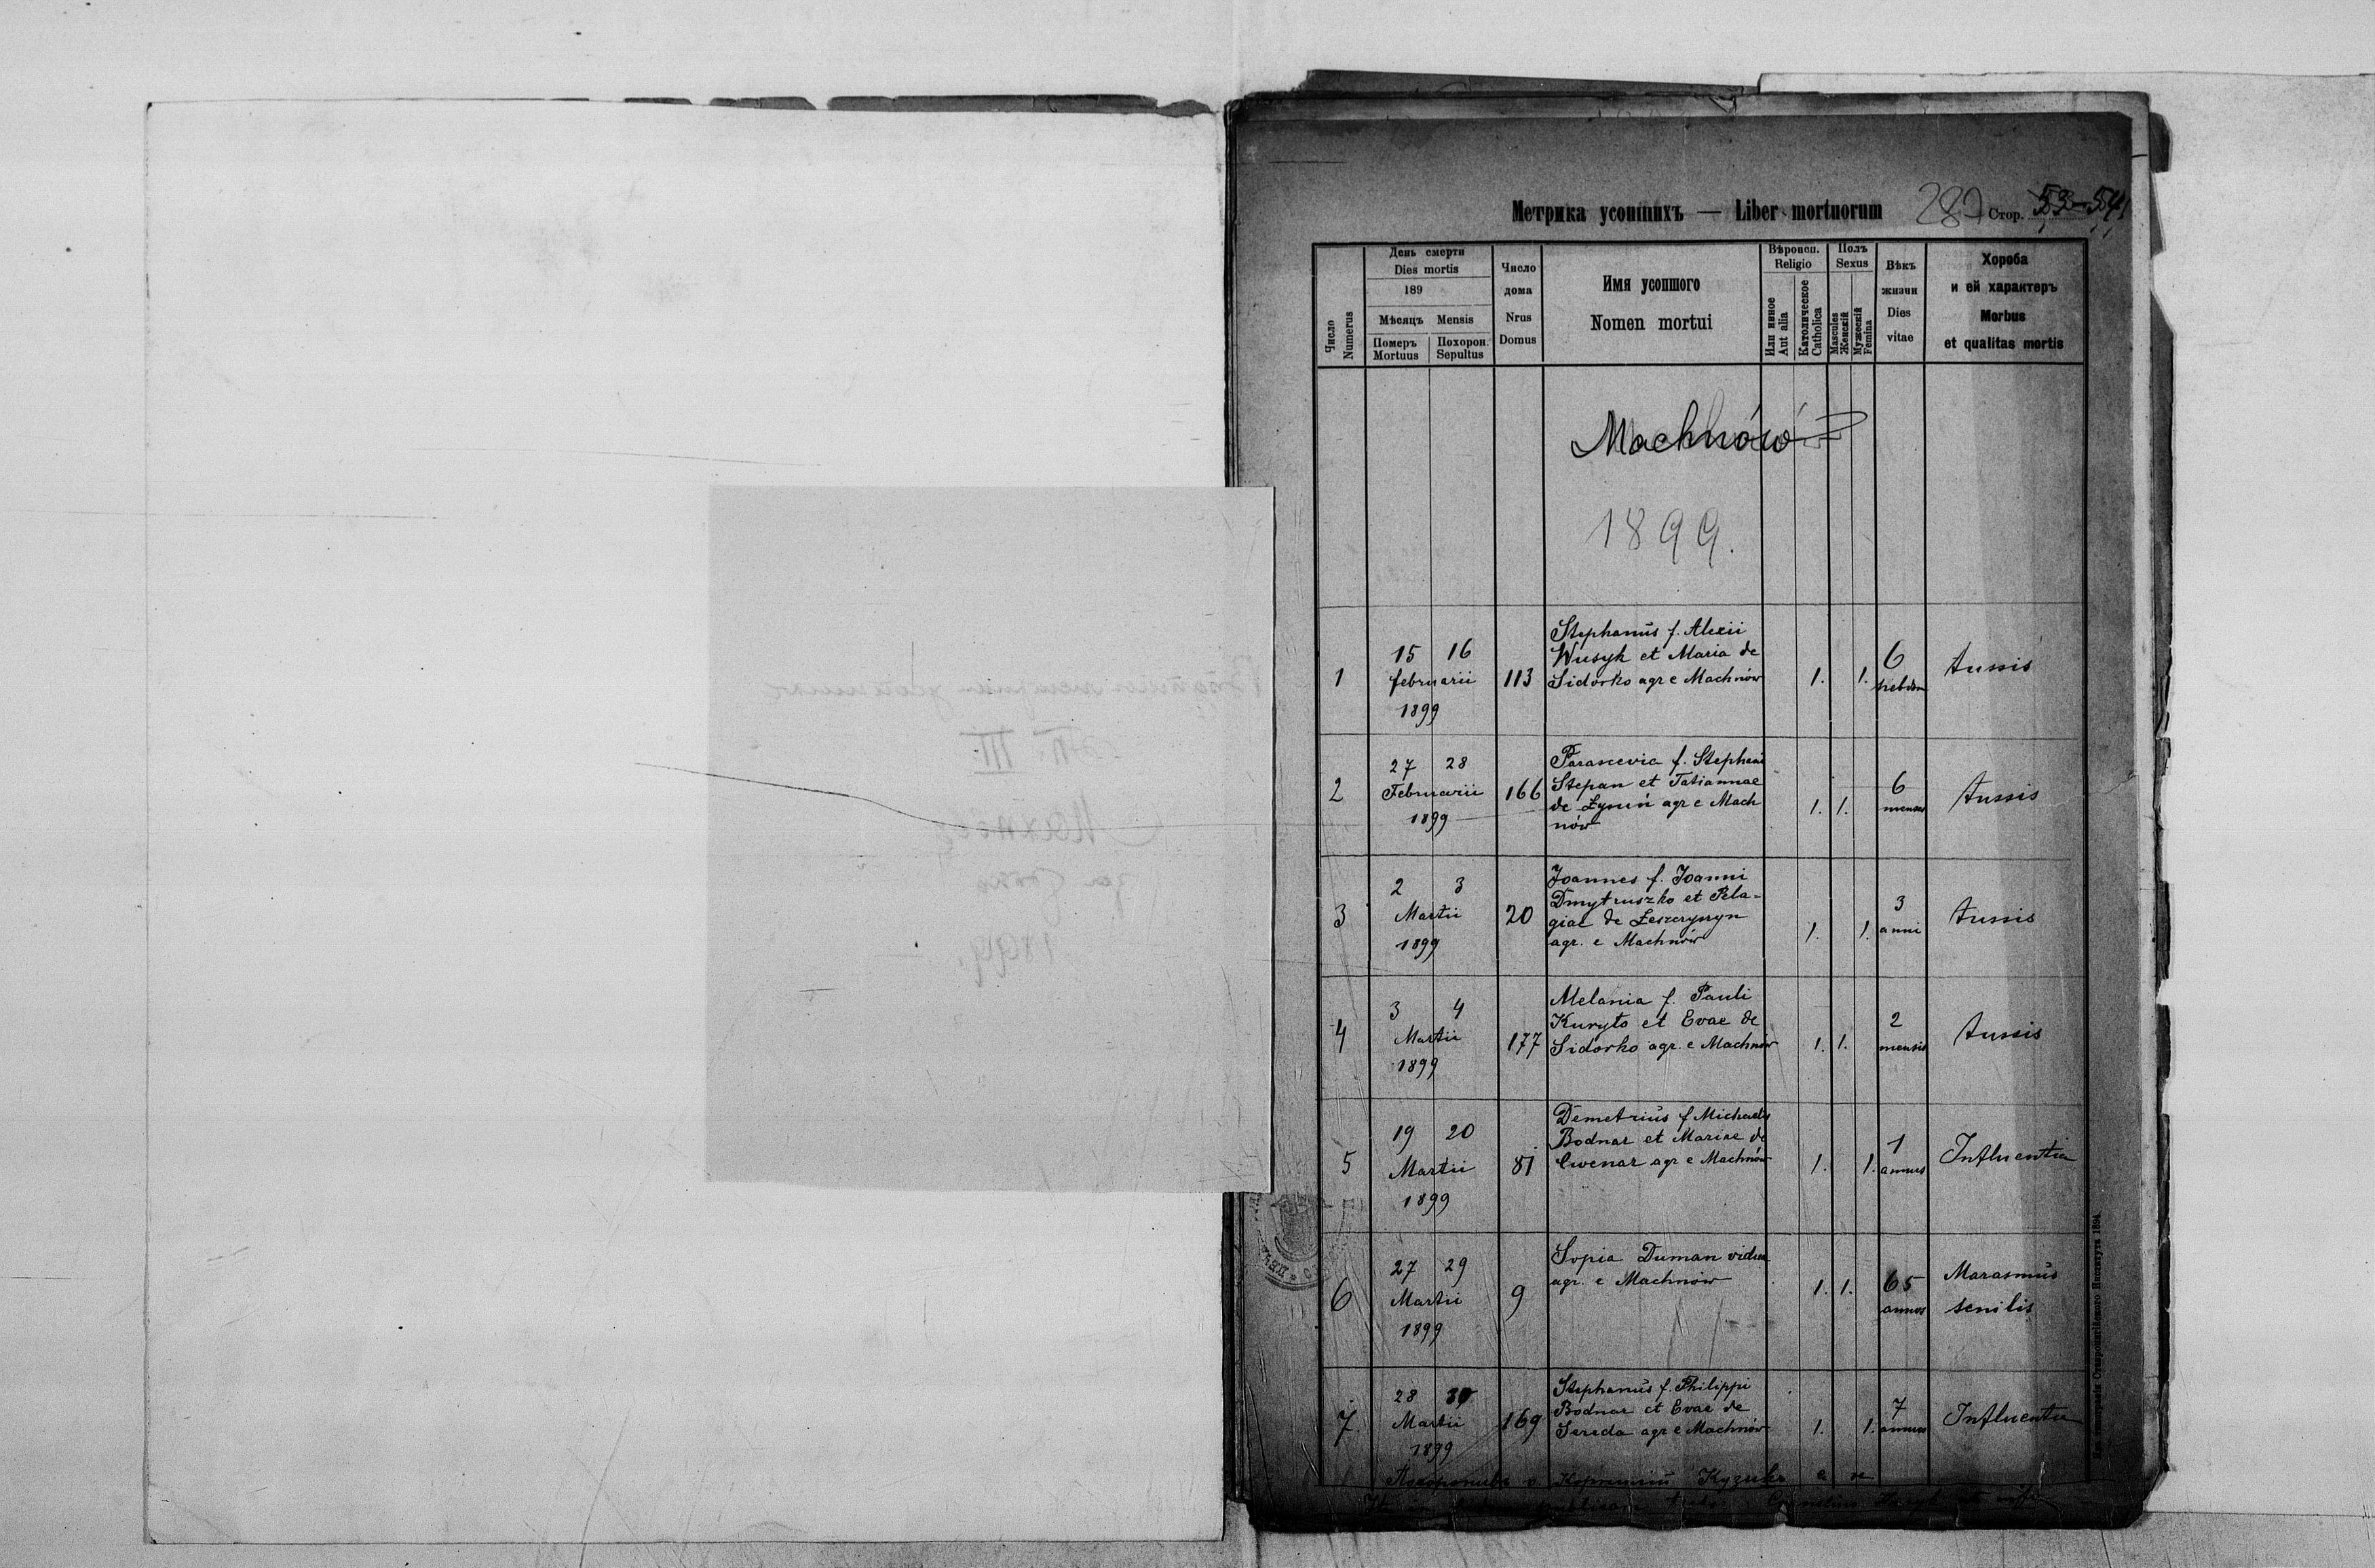 Метрика усопшихъ — Liber mortuorum
287 Стор. 53 54
Число Numerus
День смерти
Dies mortis
189
Мѣсяцъ Mensis
Померъ Mortuus
Похорон. Sepultus
Число дома
Nrus Domus
Имя усопшого
Nomen mortui
Вѣроисп.
Religio
Или инное
Aut alia
Католическое
Catholica
Полъ
Sexus
Mascules
Женскій
Мужескій
Femina
Вѣкъ жизни
Dies vitae
Хороба
и ей характеръ
Morbus
et qualitas mortis
Machnów
1899.
1
15 16
februarii
1899
113
Stephanus f. Alexii
Wusyk et Maria de
Sidorko agr e Machnów
1. 1.
6
hebdom
tussis
2
27 28
Februarii
1899
166
Parascevia f. Stephani
Stepan et Tatiannae
de agr e Mach
nów
1. 1.
6
menses
tussis
3
2 3
Martii
1899
20
Joannes f. Joanni
Dmytruszko et Pela-
giae de
agr. e Machnów
1. 1.
3
anni
tussis
4
3 4
Martii
1899
177
Melania f. Pauli
Kuryło et Evae de
Sidorko agr. e Machnów
1. 1.
2
mensis
tussis
5
19 20
Martii
1899
81
Demetrius f Michaelis
Bodnar et Mariae de
Cwenar agr e Machnów
1. 1.
1
annus
Influentia
6
27 29
Martii
1899
9
Sopia Duman vidua
agr. e Machnów
1. 1.
65
annos
Marasmus
senilis
7
28 30
Martii
1899
169
Stephanus f. Philippi
Bodnar et Evae de
Sereda agr e Machnów
1. 1.
7
annus
Influentia
Изъ типографіи Ставропигійского Института 1894.